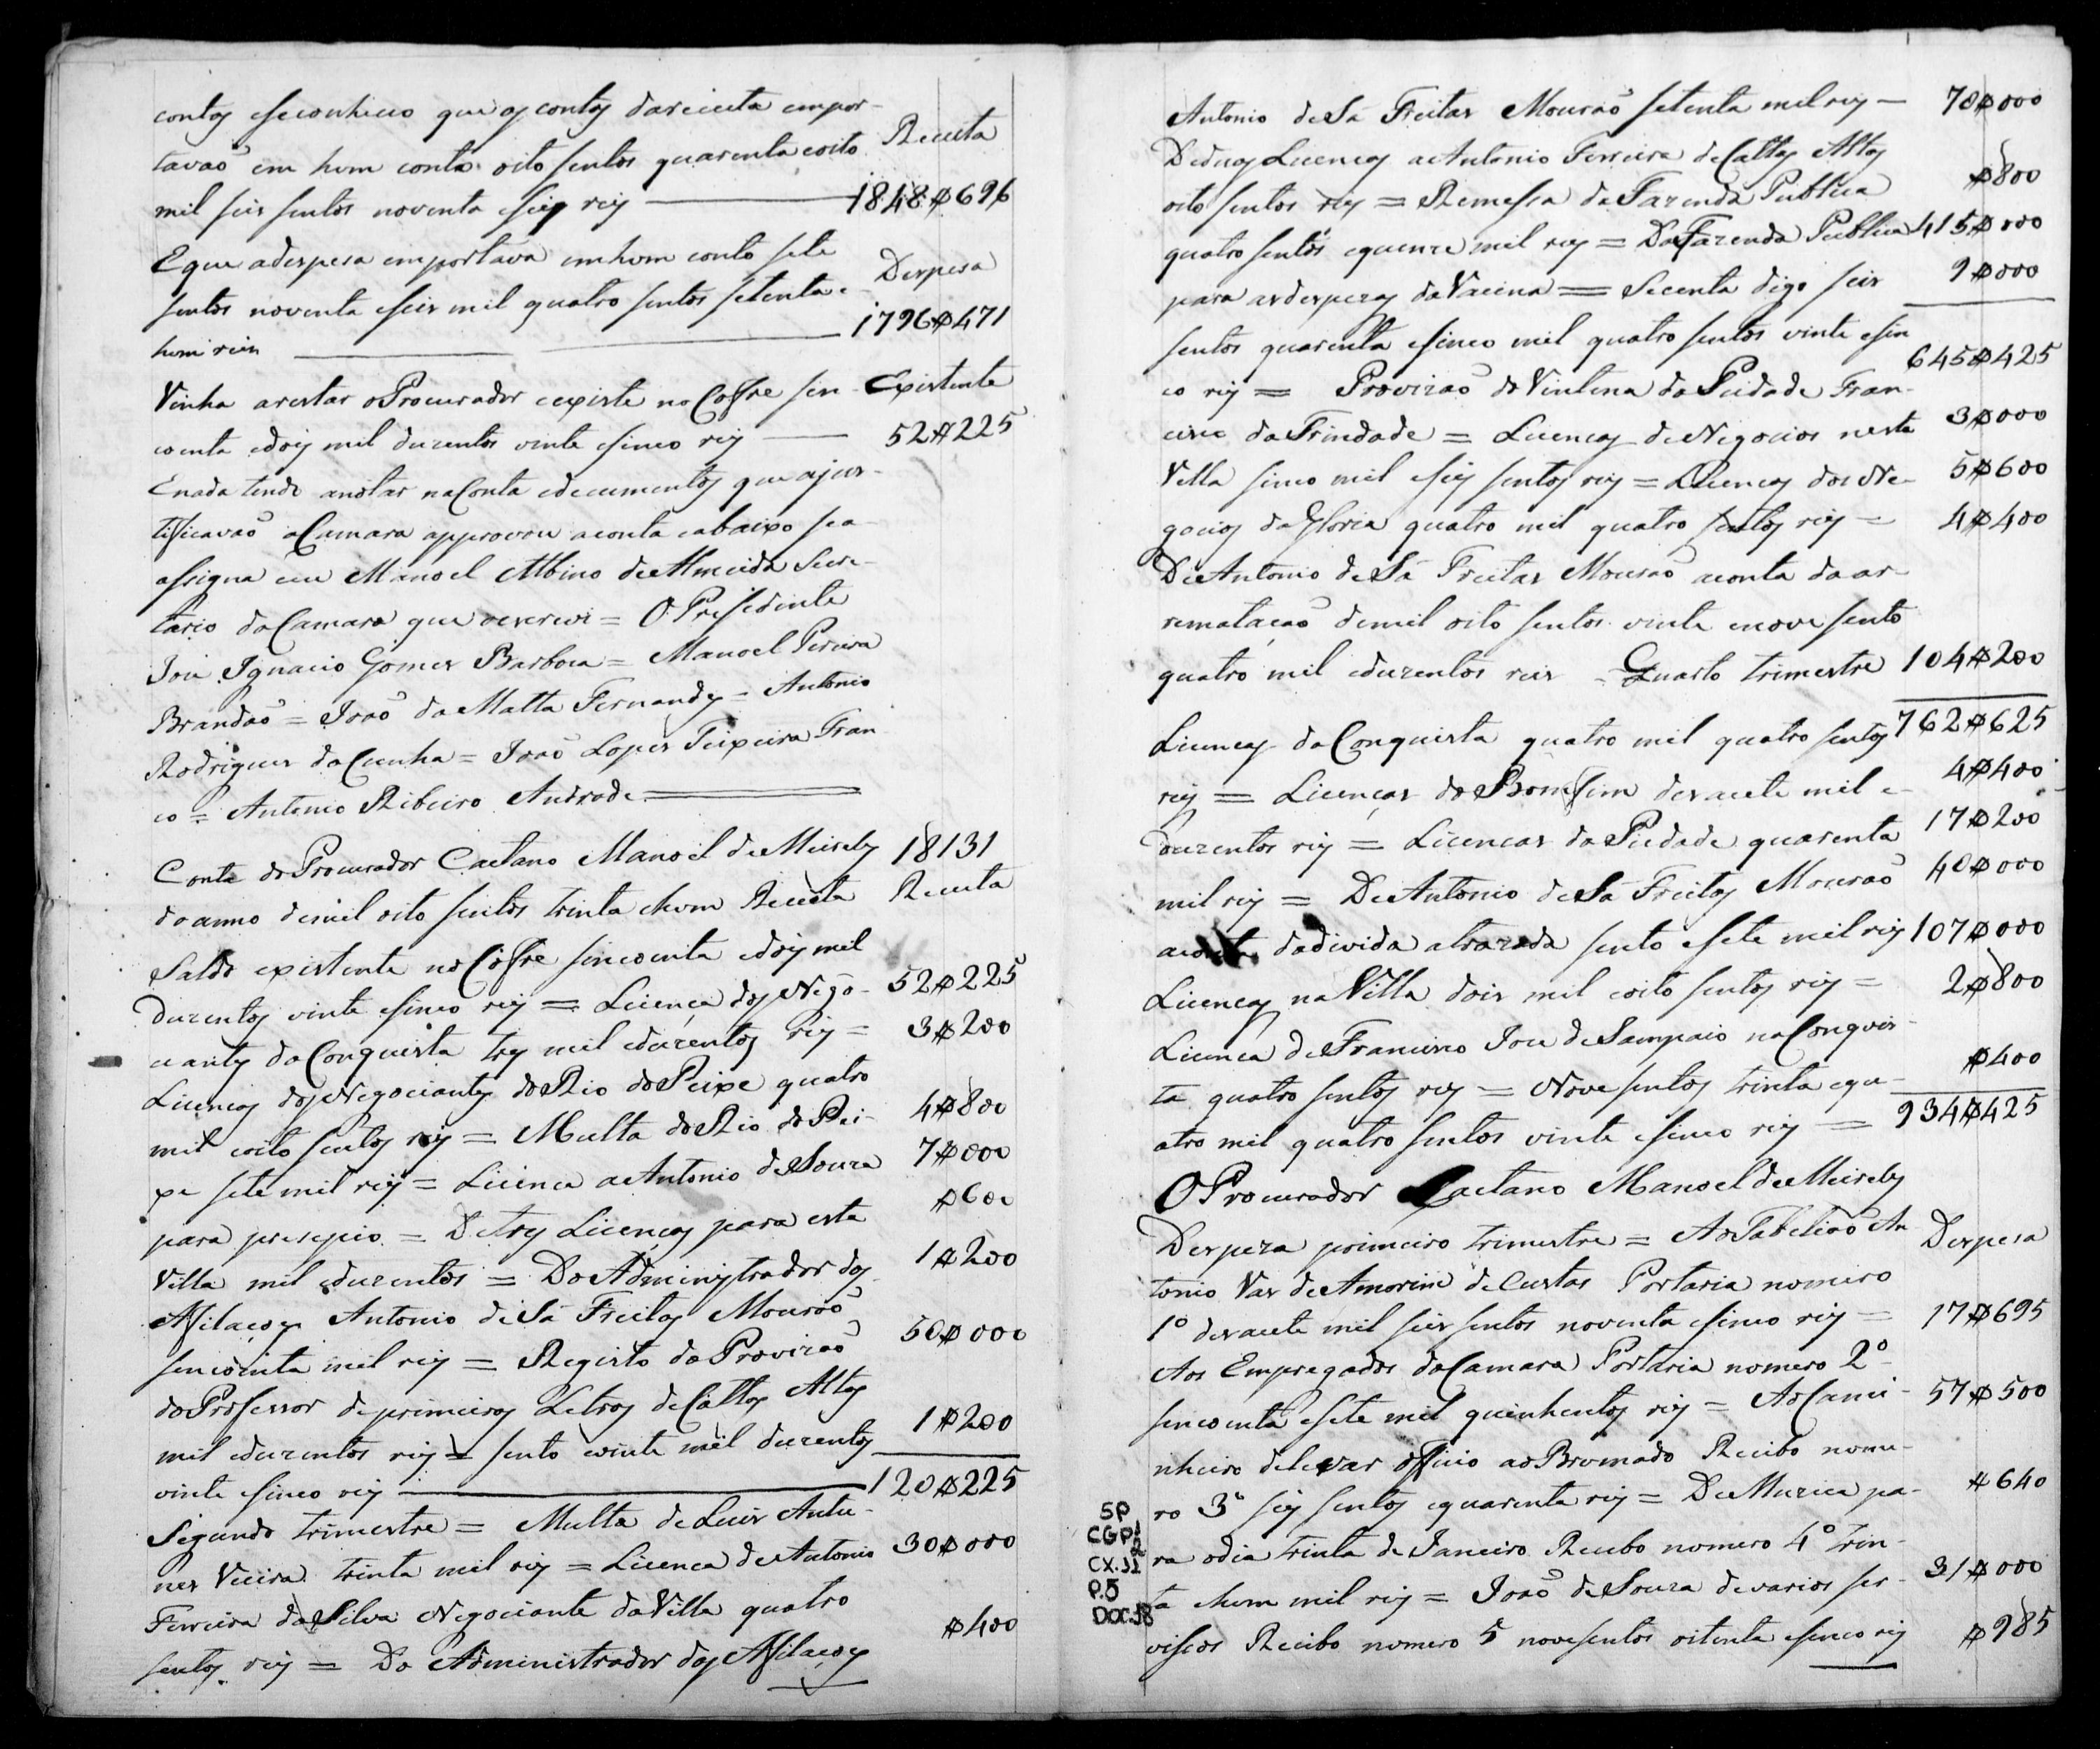 contos e se conhiceo que os contos da receita empor-
tavaõ em hum conto oito sentos quarenta e oito Receita
mil seis sentos noventa e seis reis 1848$696
E que a despesa emportava em hum conto sete
sentos noventa e seis mil quatro sentos setenta e Despesa
hum reis 1796$471
Vinha arestar o Procurador e existe no Cofre sin- Existente
coenta e dois mil duzentos vinte e sinco reis 52$225
E nada tendo anotar na Conta e documentos que a jus-
tificavaõ a Camara approvou a conta e abaixo se a-
assigna eu Manoel Albino de Almeida Secre-
tario da Camara que o escrevi = O Presedente
Joze Ignacio Gomes Barboza = Manoel Pereira
Brandaõ = Joaõ da Matta Fernandes = Antonio
Rodrigues da Cunha = Joaõ Lopes Teixeira Fran-
co = Antonio Ribeiro Andrade
Conta do Procurador Caetano Manoel de Meireles 18131
do anno de mil oito sentos trinta e hum Receita Receita
Saldo existente no Cofre sincoenta e dois mil
duzentos vinte e sinco reis = Licença dos Nego- 52$225
ciantes da Conquista tres mil e duzentos reis = 3$200
Licenças dos Negociantes do Rio do Peixe quatro
mil e oito sentos reis = Multa do Rio do Pei- 4$800
xe sete mil reis = Licença a Antonio de Souza 7$000
para presepio = De tres Licenças para esta $600
Villa mil e duzentos = Do Administrador das 1$200
Afilaçoes Antonio de Sá Freitas Mouraõ
sincoenta mil reis = Registo da Provizaõ 50$000
do Professor de primeiras Letras de Caltas Altas
mil e duzentos reis = sento e vinte mil duzentos 1$200
vinte e sinco reis 120$225
Segundo trimestre = Multa de Luis Antu-
nes Vieira trinta mil reis = Licença de Antonio 30$000
Ferreira da Silva Negociante da Villa quatro
sentos reis = Do Administrador das Afilaçoes $400
Antonio de Sá Freitas Mouraõ setenta mil reis 70$000
De duas Licenças a Antonio Ferreira de Caltas Altas
oito sentos reis = Remessa da Fazenda Publica $800
quatro sentos e quinze mil reis = Da Fazenda Publica 415$000
para as despezas da Vacina = Secenta digo seis 9$000
sentos quarenta e sinco mil quatro sentos vinte e sin
co reis = Provizaõ do Vintena da Piedade Fran- 645$425
cisco da Trindade = Licenças de Negocios nesta 3$000
Villa sinco mil e seis sentos reis = Licenças dos Ne- 5$600
gocios da Gloria quatro mil quatro sentos reis = 4$400
De Antonio de Sá Freitas Mouraõ aconta da ar-
rematação de mil oito sentos vinte e nove sento
quatro mil e duzentos reis = Quarto trimestre 104$200
762$625
Licenças da Conquista quatro mil quatro sentos
reis = Licenças do Bomfim desacete mil e 4$400
duzentos reis = Licencas da Piedade quarenta 17$200
mil reis = De Antonio de Sá Freitas Mouraõ 40$000
aconta da divida atrazada sento e sete mil reis 107$000
Licenças na Villa dois mil e oito sentos reis = 2$800
Licenca de Francisco Joze de Sampaio na Conquis-
ta quatro sentos reis = Nove sentos trinta e qu- $400
atro mil quatro sentos vinte e sinco reis = 934$425
O Procurador Caetano Manoel de Meireles
Despeza primeiro trimestre = Ao Tabeliaõ An Despesa
tonio Vas de Amorim de Custas Portaria nomero
1º desacete mil seis sentos noventa e sinco reis = 17$695
Aos Empregados da Camara Portaria nomero 2º
sincoenta e sete mil quinhentos reis = Ao Cami- 57$500
nheiro de levar officio ao Bromado Recibo nome-
ro 3º seis sentos e quarenta reis = De Muzica pa- $640
ra o dia trinta de Janeiro Recebo nomero 4º trin-
ta e hum mil reis = Joaõ de Souza de varios ser- 31$000
vissos Recibo nomero 5 nove sentos oitenta e sinco reis $985
SP
CX.11
P.5
DOC.18